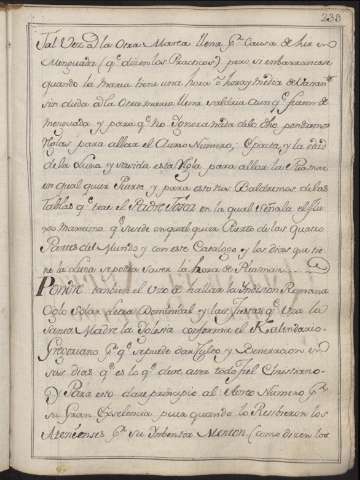 238
Tal Vez a la Otra Marea llena Pr Causa de hir en
Menguada (qe disen los Practicos) pero si embarrancara
quando la marea tiene una hora o hora y media de
sin duda a la Otra marea llena saldria aun qe fueran de
menguada y para qe no Ignore nada de lo dho pondremos
Reglas para allar el Auro Numero, Epacta, y la edad
de la Luna y savida esta Regla para allar la Pleamar
en qual quier Puerto y para esto nos Baldremos de las
Tablas qe trae el Padre Tosca en la qual Señala el flu-
xo marino qe sucede en qual quier Puerto de las Quatro
Partes del Mundo y con este Catalogo y los dias que tie-
ne la Luna se podra saver la hora de Pleamar
Pondre tambien el Uso de hallar la Indision Romana
Ciclo Solar Letra Dominical y las fiestas qe Usa la
Santa Madre la Iglesia conforme el Kalendario
Gregoriano Pr qe se puedan dar Culto y Beneracion en
sus dias qe es lo qe deve aser todo fiel Christiano
Para esto dare principio al Aureo Numero Pr
su Gran Exselencia pues quando lo Resibieron los
Atenienses Pr su Inbentor Menton (como disen los